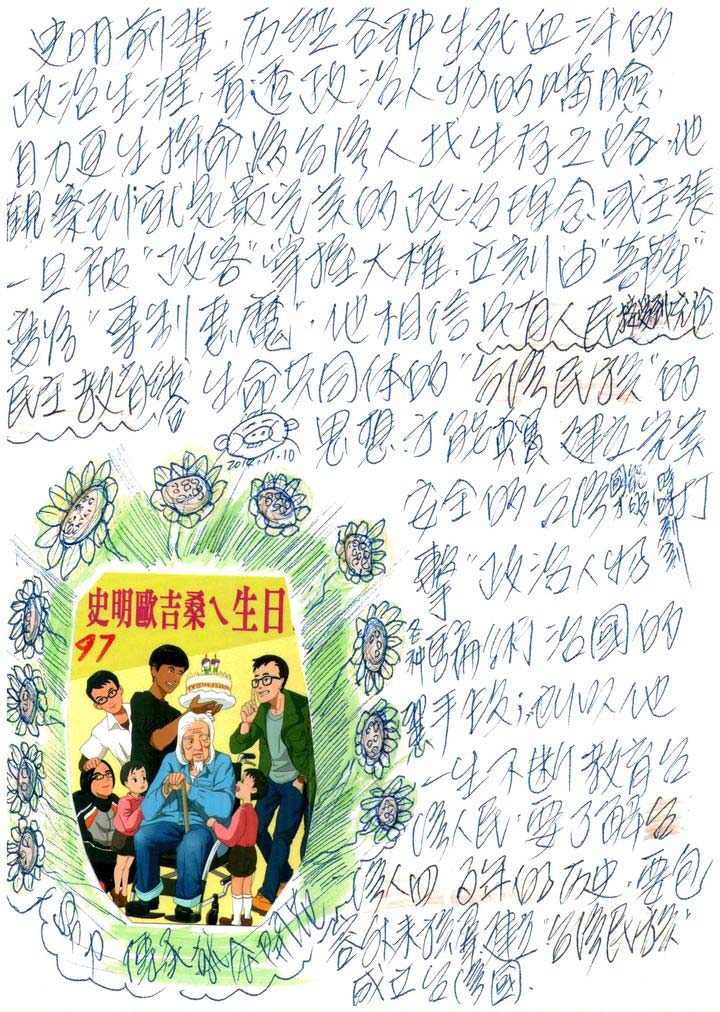 史明前輩，历经各种生死血汗的
政治生涯，看透政治人物的嘴臉，
自力更生拼命為台灣人找生存之路，他
觀察到就是最完美的政治理念或主張
一旦被"政客"掌握大權，立刻由"菩薩"
變為"專制惡魔"，他相信只有人民
民主教育 生命共同体的"台灣民族"的
思想，才能 建立完美
2014.11.10
安全的台灣國，才能 時時刻刻 打
擊"政治人物
各種 術治國的
手段，所以他
一生不断教育台
灣人民，要了解台
灣人四百年的历史，要包
容外來族群建立"台灣民族"
成立台灣國.
史明歐吉桑ㄟ生日
97